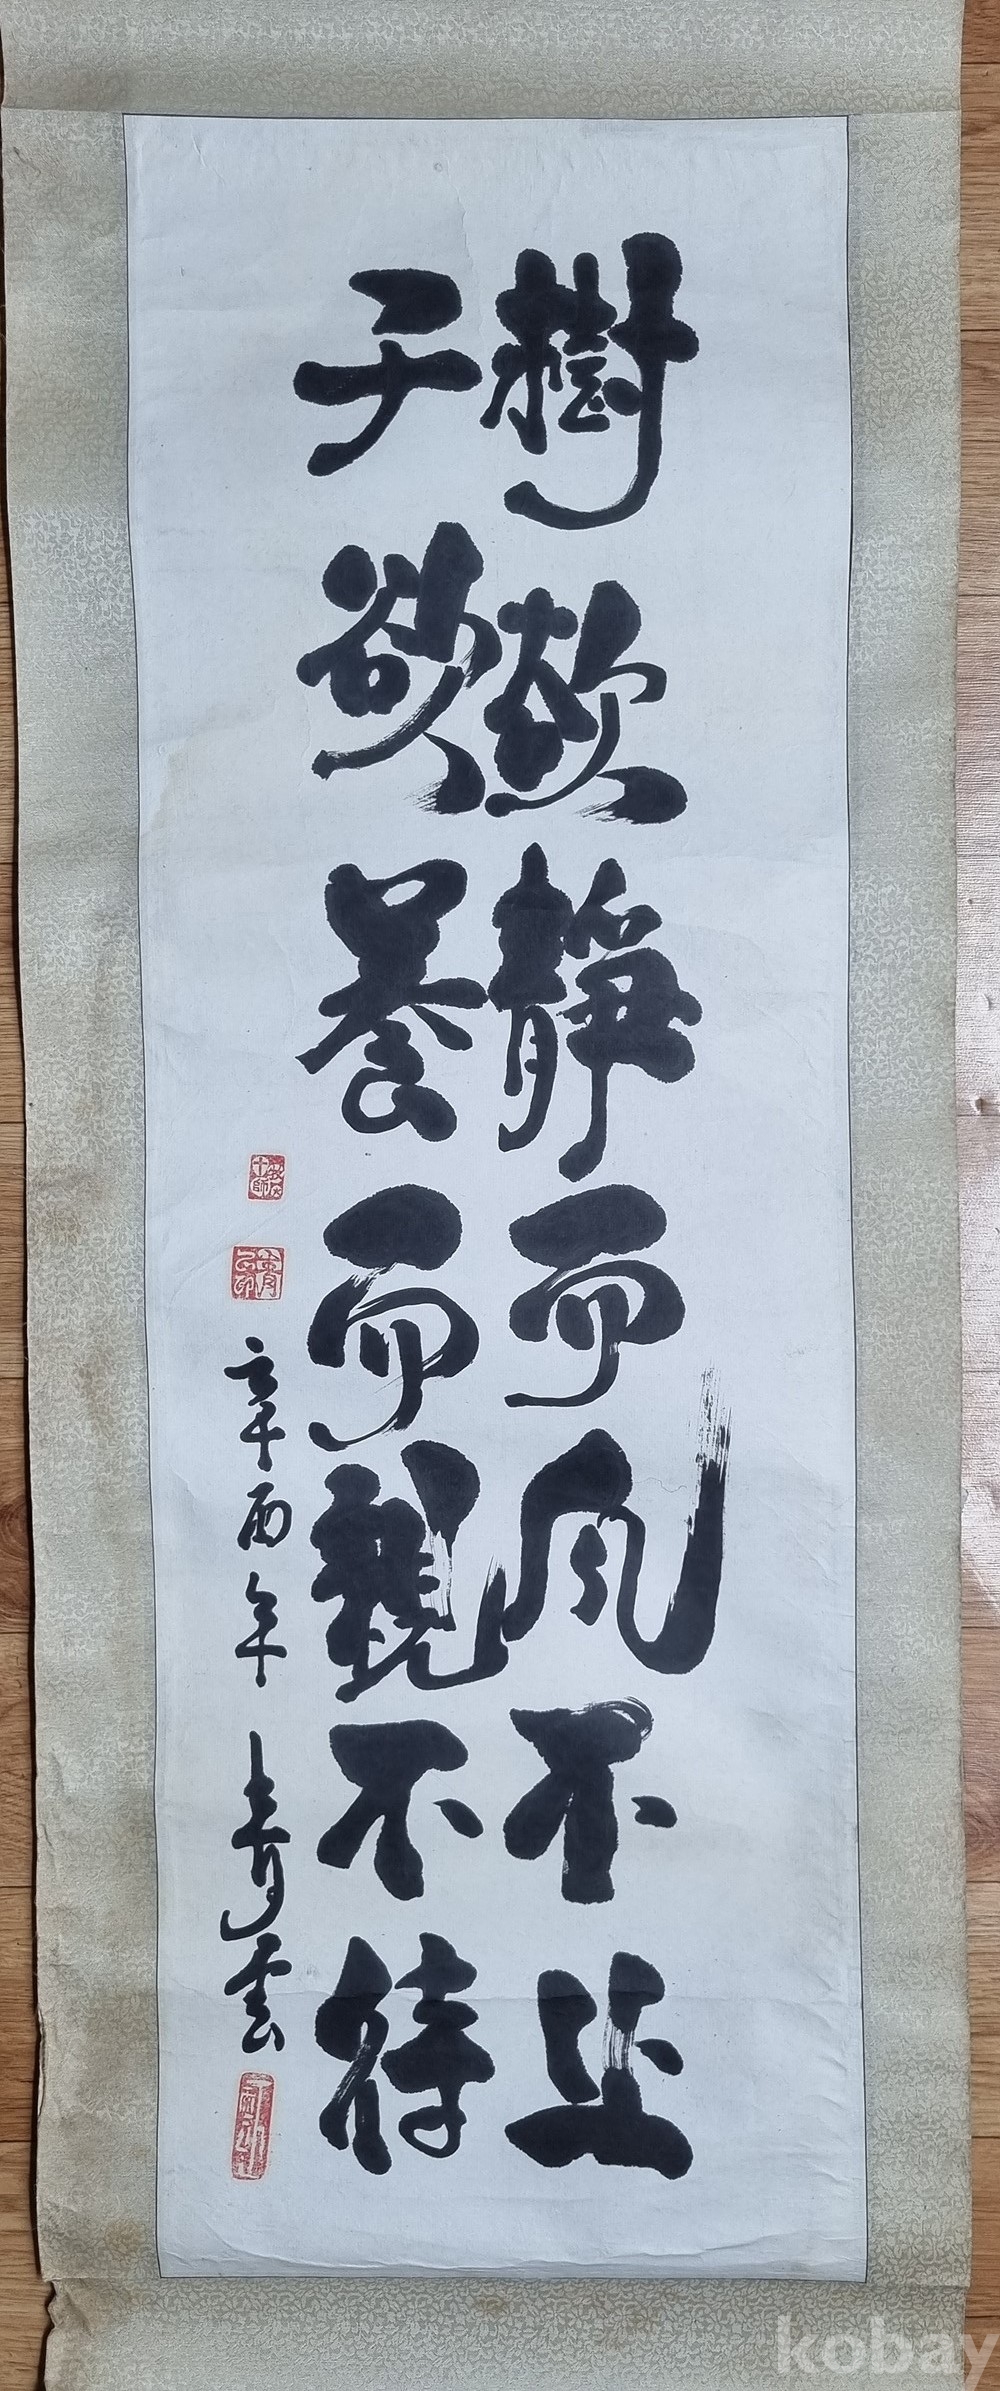 樹欲靜而風不止
子欲養而親不待
辛酉年 青雲
kobay